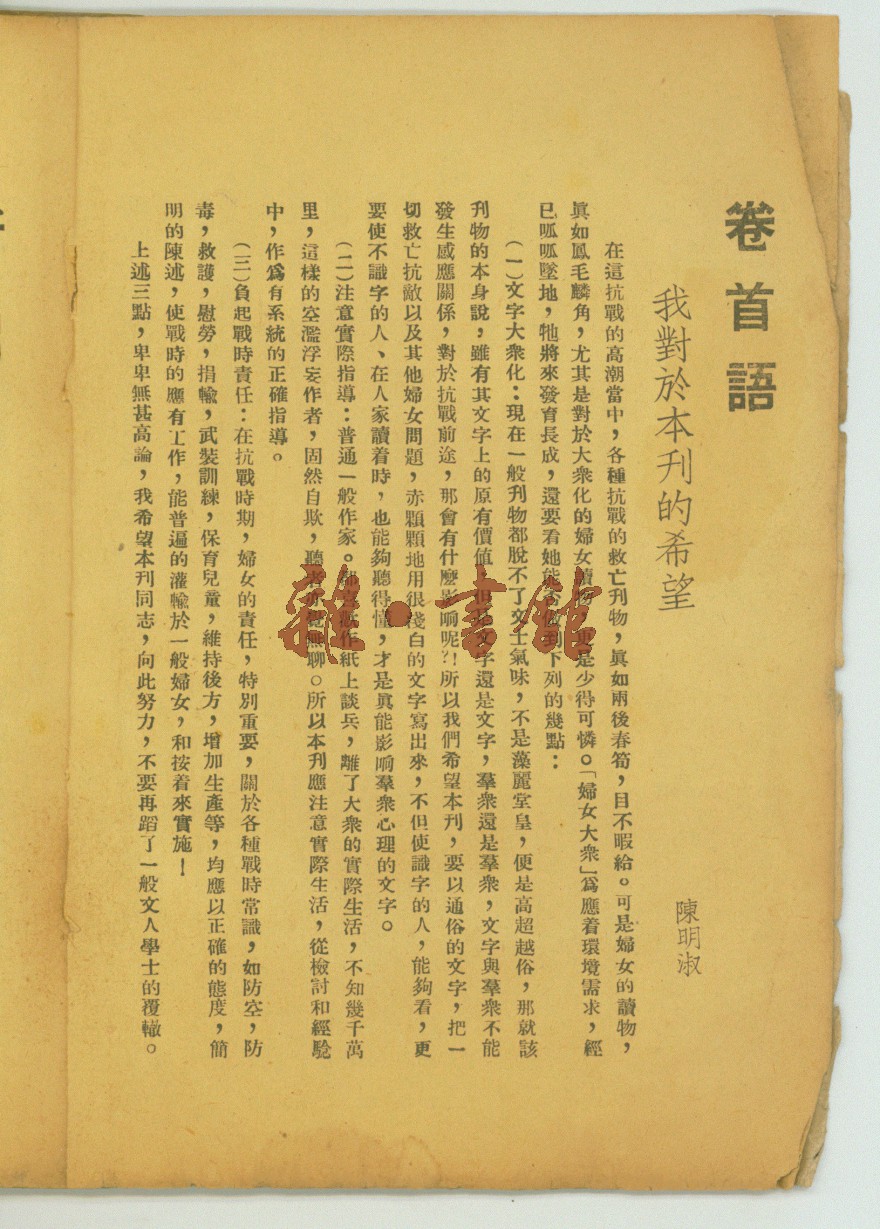 卷首語
我對於本刊的希望
陳明淑
在這抗戰的高潮當中，各種抗戰的救亡刊物，眞如雨後春筍，目不暇給。可是婦女的讀物，
眞如鳳毛麟角，尤其是對於大衆化的婦女讀物，更是少得可憐。「婦女大衆」爲應着環境需求，經
已呱呱墜地，牠將來發育長成，還要看她能否做到下列的幾點：
（一）文字大衆化：現在一般刊物都脫不了文士氣味，不是藻麗堂皇，便是高超越俗，那就該
刊物的本身說，雖有其文字上的原有價値，但是文字還是文字，羣衆還是羣衆，文字與羣衆不能
發生感應關係，對於抗戰前途，那會有什麼影响呢？！所以我們希望本刊，要以通俗的文字，把一
切救亡抗敵以及其他婦女問題，赤顆顆地用很淺白的文字寫出來，不但使識字的人，能夠看，更
要使不識字的人、在人家讀着時，也能夠聽得懂，才是眞能影响羣衆心理的文字。
（二）注意實際指導：普通一般作家。都喜歡作紙上談兵，離了大衆的實際生活，不知幾千萬
里，這樣的空濫浮妄作者，固然自欺，聽者亦覺無聊。所以本刊應注意實際生活，從檢討和經驗
中，作爲有系統的正確指導。
（三）負起戰時責任：在抗戰時期，婦女的責任，特別重要，關於各種戰時常識，如防空，防
毒，救護，慰勞，捐輸，武裝訓練，保育兒童，維持後方，增加生產等，均應以正確的態度，簡
明的陳述，使戰時的應有工作，能普遍的灌輸於一般婦女，和按着來實施！
上述三點，卑卑無甚高論，我希望本刊同志，向此努力，不要再蹈了一般文人學士的覆轍。
雜·書館